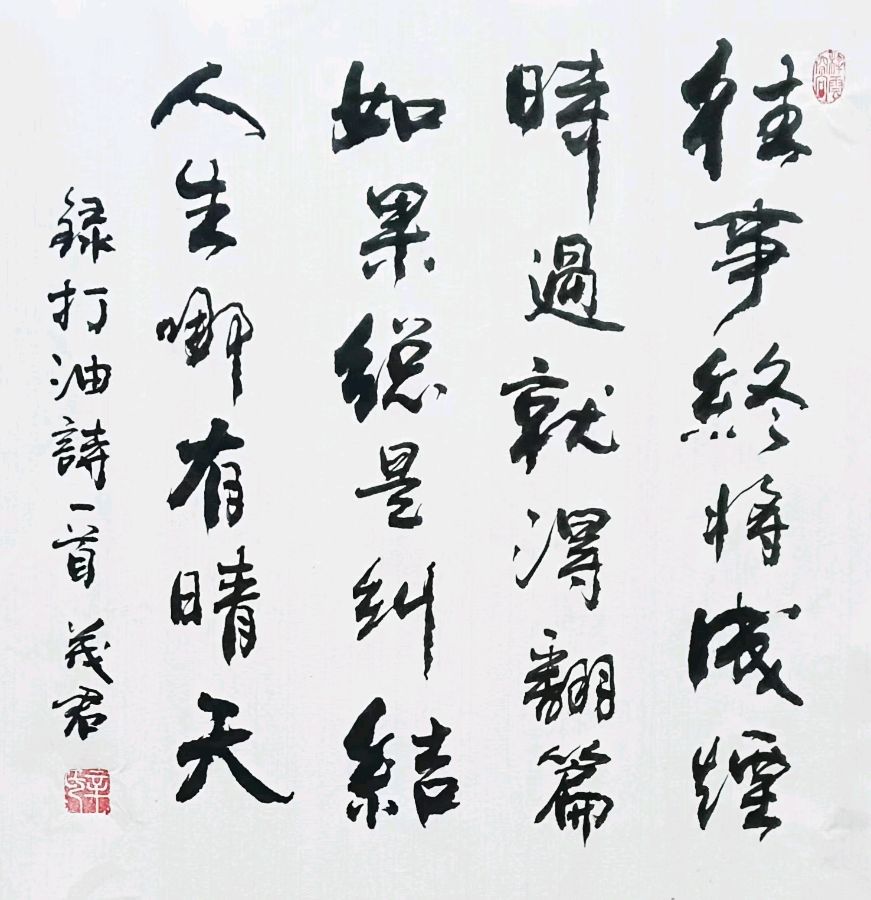 往事終將成煙
時過就得翻篇
如果總是糾結
人生哪有晴天
録打油詩一首 茂君